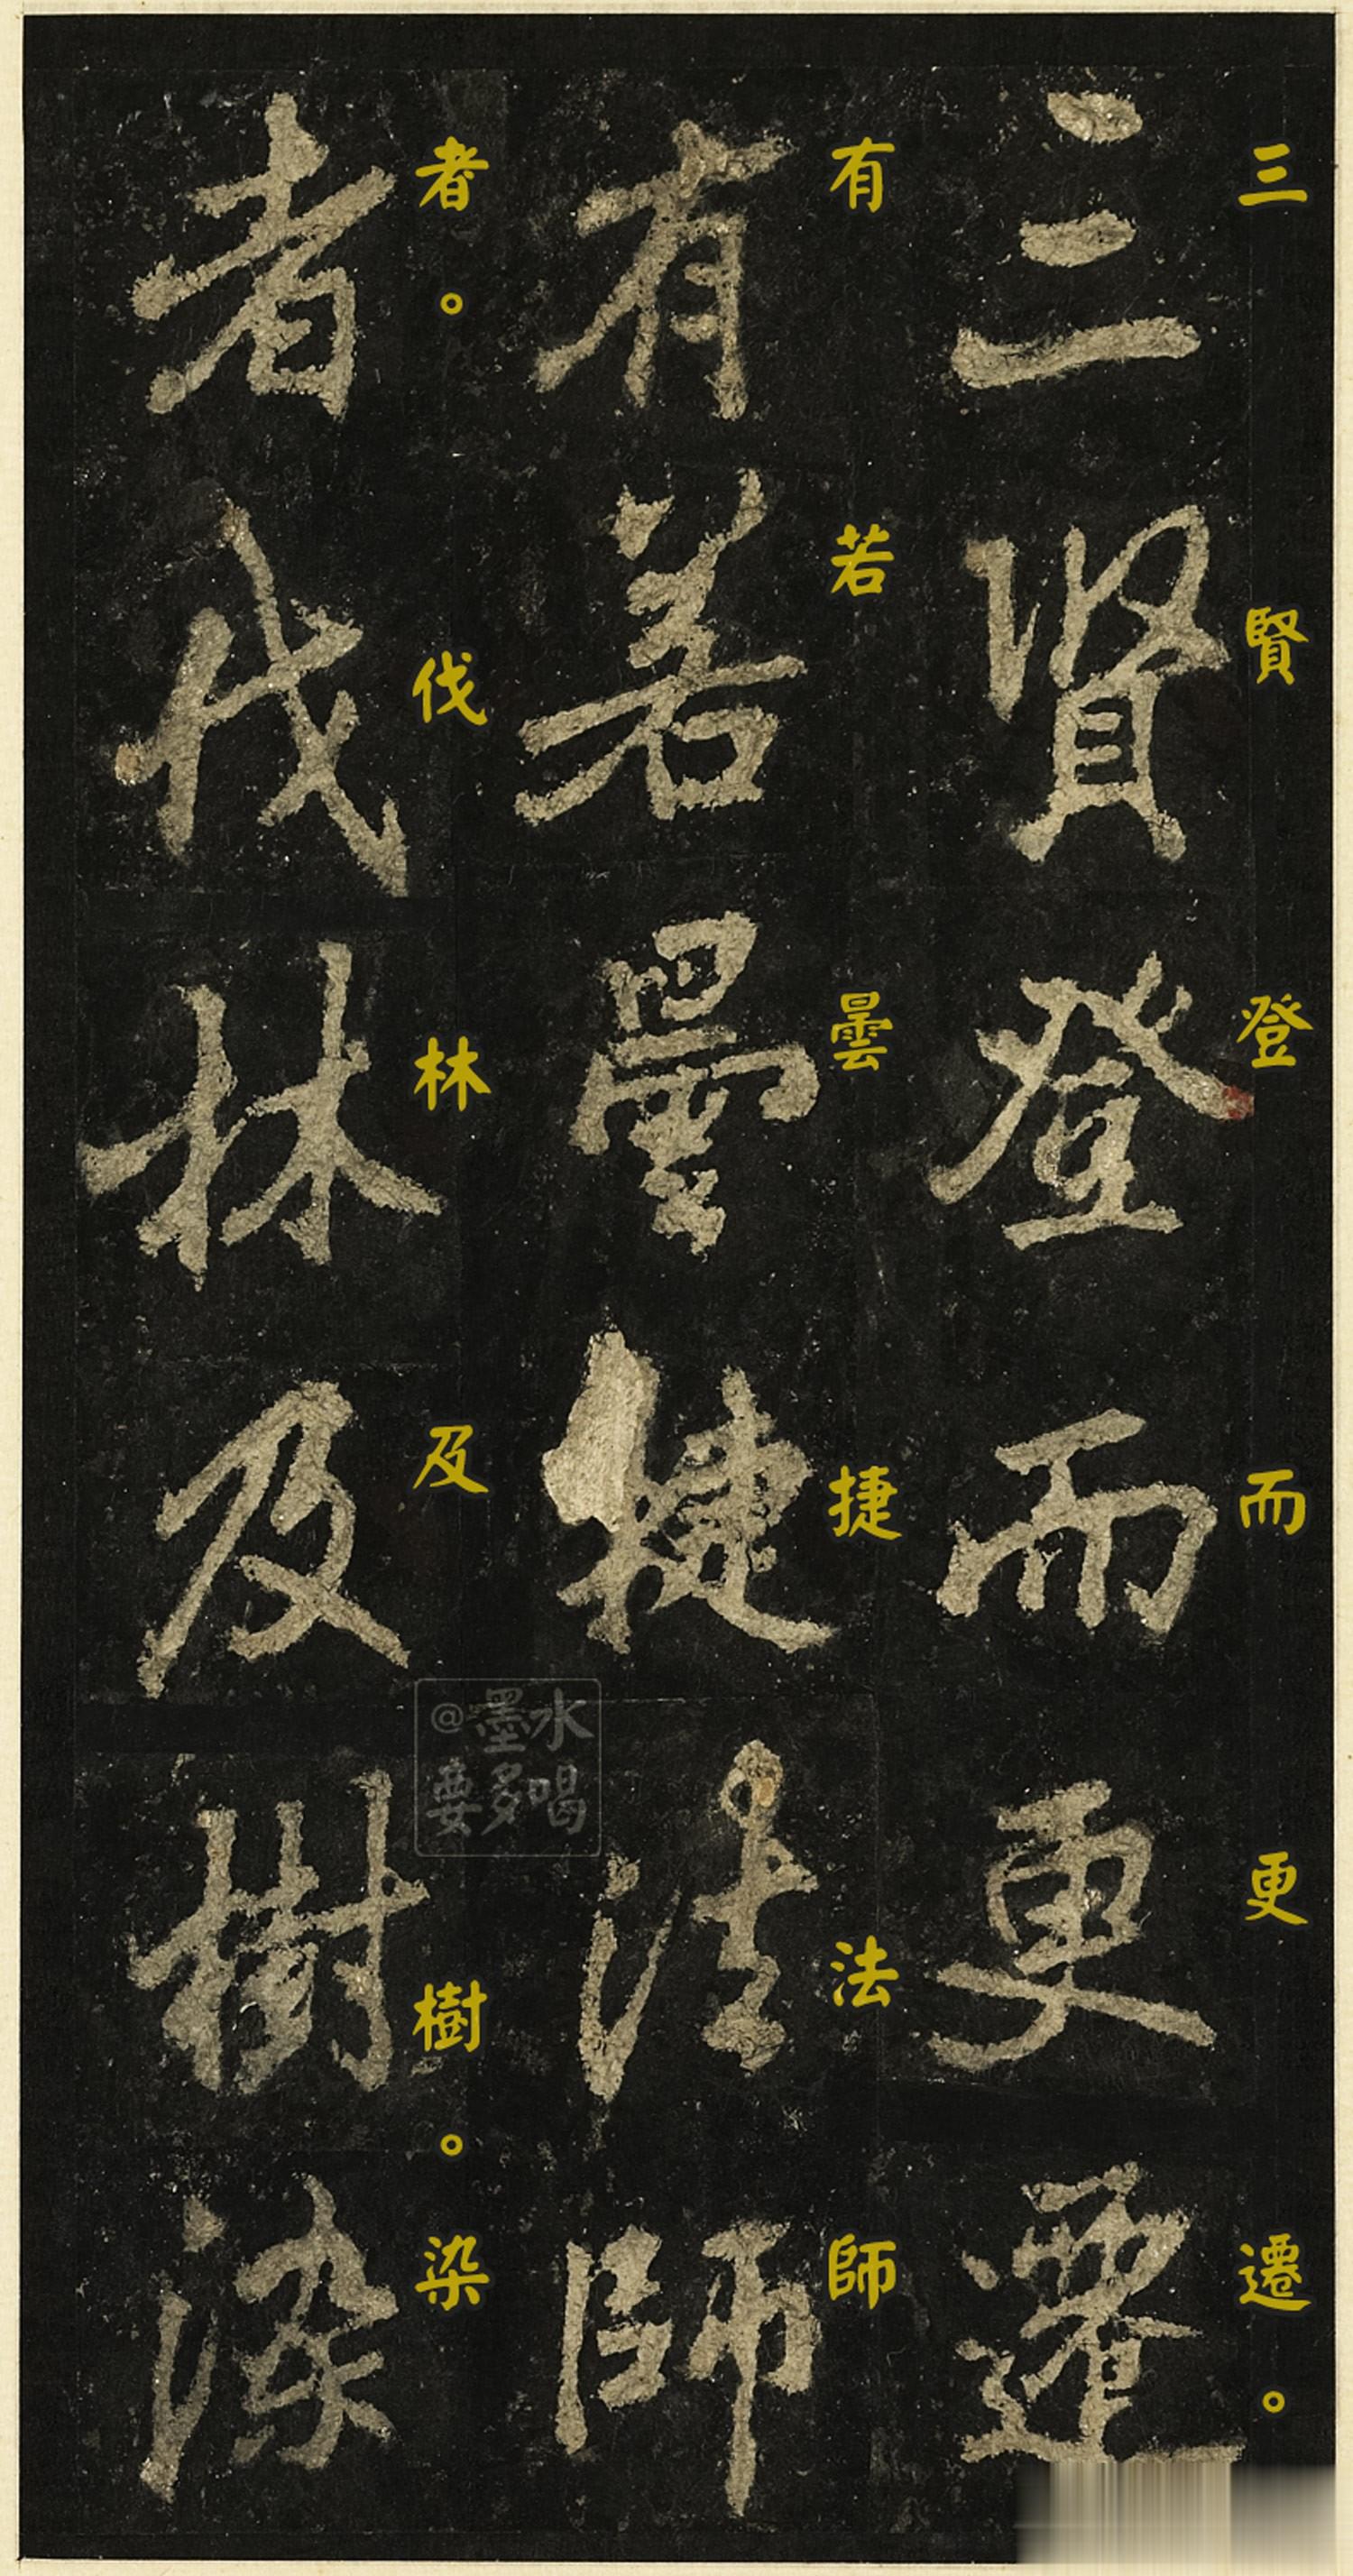 三賢登而更遷。
三賢登而更遷
有若曇捷法師
有若曇捷法師
者。伐林及樹。染
者伐林及樹染
@墨水
要多喝